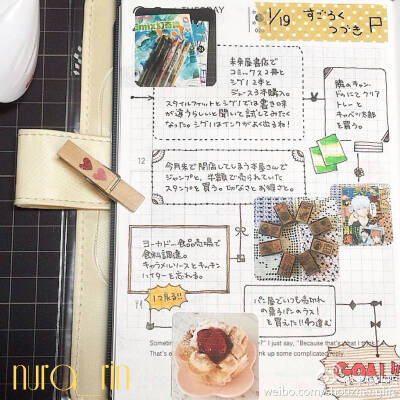 TUESDAY
1/19 すごろく
つづき
未来屋書店で
コミックス2冊と
ジグリ2本と
ジュース3本購入。
スタイルフィットとジグリでは書き味
が違うらしいと聞いて試してみたく
なった。ジグリはインクがよく出るね!
隣のキャン
ドゥにてクリア
トレーと
キャベツ太郎
を買う。
12
今月末で閉店してしまう本屋さんで
ジャンプと、半額で売られていた
スタンプを買う。切なさとお得さと。
ヨーカドー食品売場で
食料調達。
キャラメルソースとキッチン
ハイターを忘れる。
1コ戻る!!
パン屋でいつも売切れ
の菓子パンのラス1
を買えた!!4つ進む
I just say, "Because that's what I think.
That's
up some complicated reply
GOAL!!
nura rin